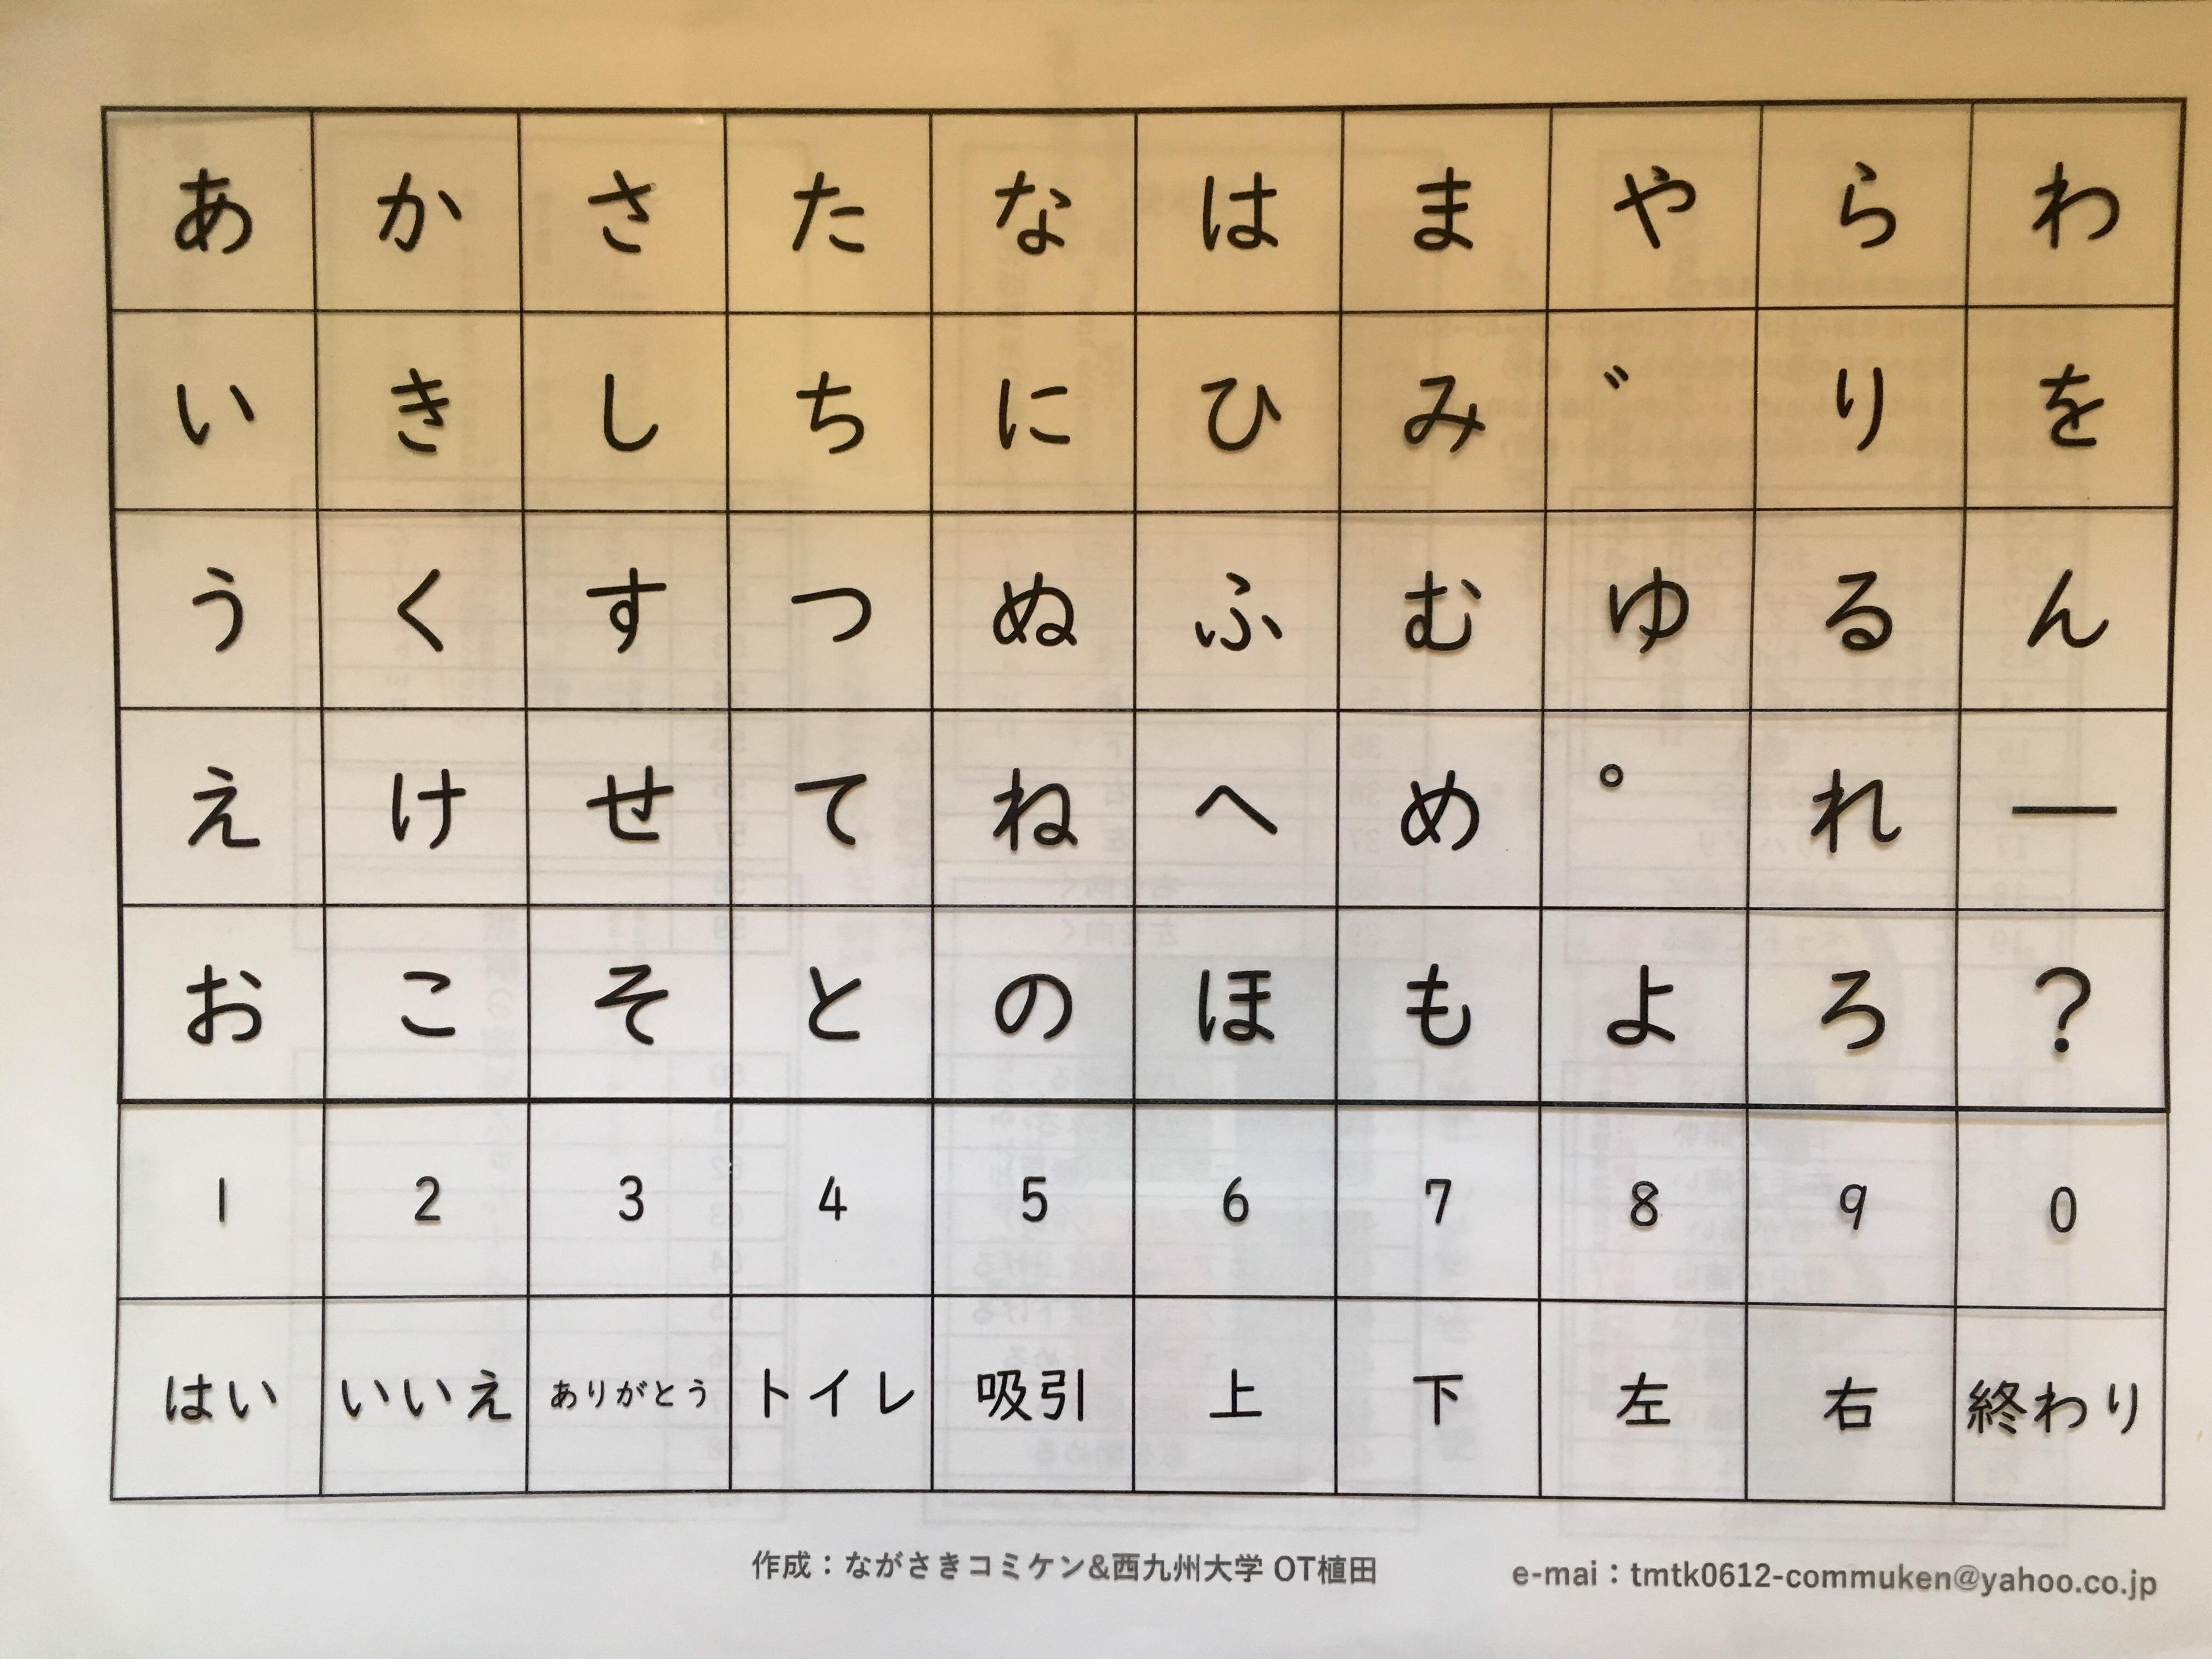 あ か さ た な は ま や ら わ
い き し ち に ひ み ゛ り を
う く す つ ぬ ふ む ゆ る ん
え け せ て ね へ め ゜ れ ー
お こ そ と の ほ も よ ろ ?
1 2 3 4 5 6 7 8 9 0
はい いいえ ありがとう トイレ 吸引 上 下 左 右 終わり
作成：ながさきコミケン&西九州大学 OT植田 e-mai：tmtk0612-commuken@yahoo.co.jp